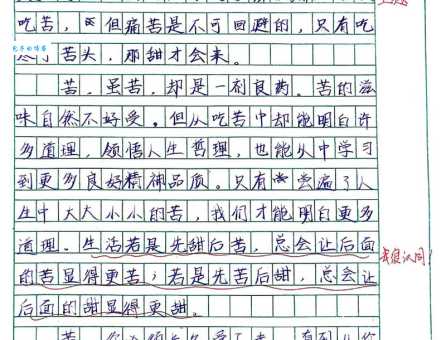 吃苦，但痛苦是不可回避的，只有吃
苦头，那甜才会来。
苦，虽苦，却是一剂良药。苦的滋
味自然不好受，但从吃苦中却能明白许
多道理，领悟人生哲理，也能从中学习
到更多良好精神品质。只有尝遍了人
生中大大小小的苦，我们才能明白更多
道理。生活若是先甜后苦，总会让后面
的苦显得更苦；若是先苦后甜，总会让
后面的甜显得更甜。
我很认同！